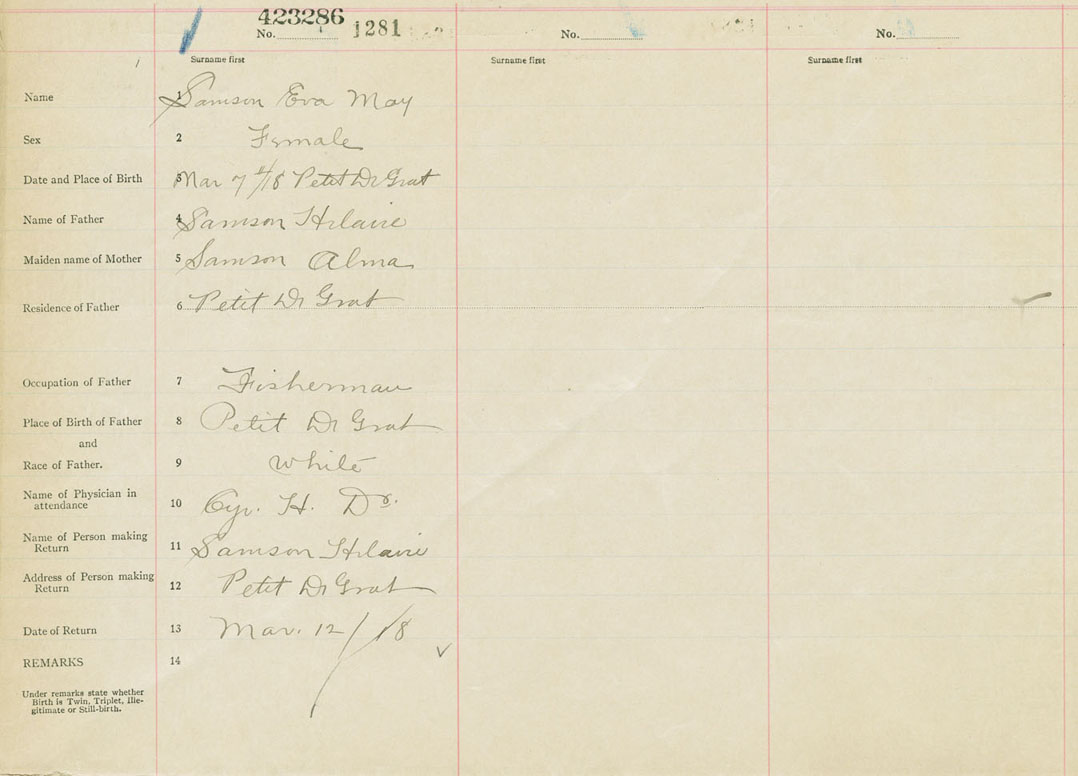 423286
No. 1281 No. No.
Surname first Surname first Surname first
Name 1 Samson Eva May
Sex 2 Female
Date and Place of Birth 3 Mar 7th/18 Petit Dr Grat
Name of Father 4 Samson Hilaire
Maiden name of Mother 5 Samson Alma
Residence of Father 6 Petit Dr Grat
Occupation of Father 7 Fisherman
Place of Birth of Father 8 Petit Dr Grat
and
Race of Father. 9 White
Name of Physician in
attendance 10 Cyr. H. Dr.
Name of Person making
Return 11 Samson Hilaire
Address of Person making
Return 12 Petit Dr Grat
Date of Return 13 Mar. 12/18
REMARKS 14
Under remarks state whether
Birth is Twin, Triplet, Ille-
gitimate or Still-birth.